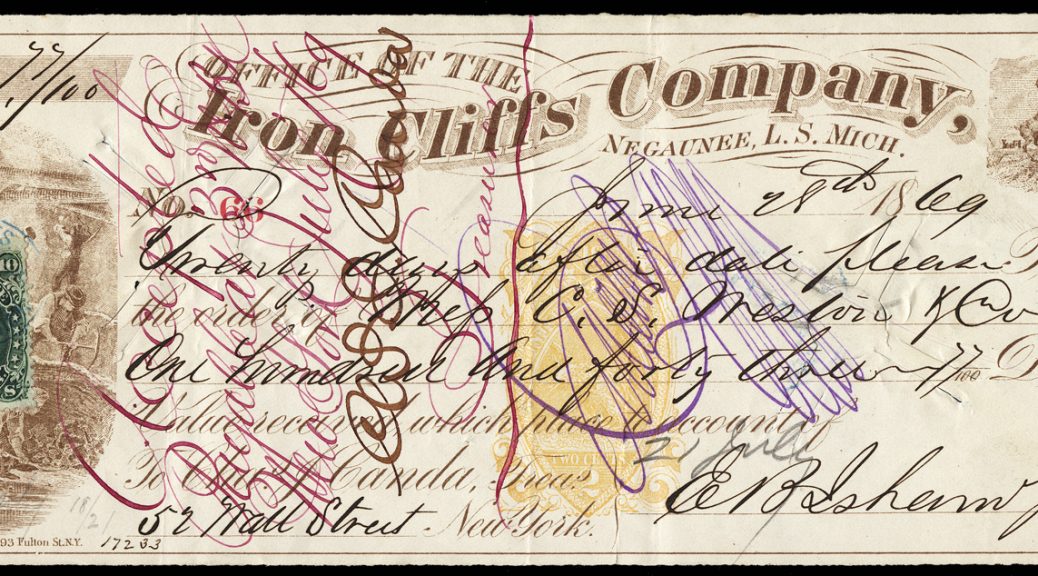 77/100
OFFICE OF THE
Iron Cliffs Company,
NEGAUNEE, L. S. MICH.
No. 66
June 28th 1869
Twenty days after date please
the order of Mess C. S. Weston & Co
One hundred and forty three 77/100 D
Value received which place to account of
21 July
To Chas J Canda, Treas
E B Isham
52 Wall Street New York.
93 Fulton St. N.Y.
17233
18/21
10
TWO CENTS
Accepted
Treasurer